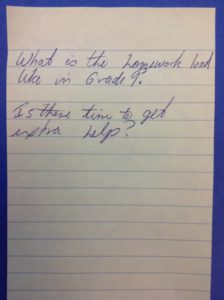 What is the homework load
like in Grade 9?
Is there time to get
extra help?